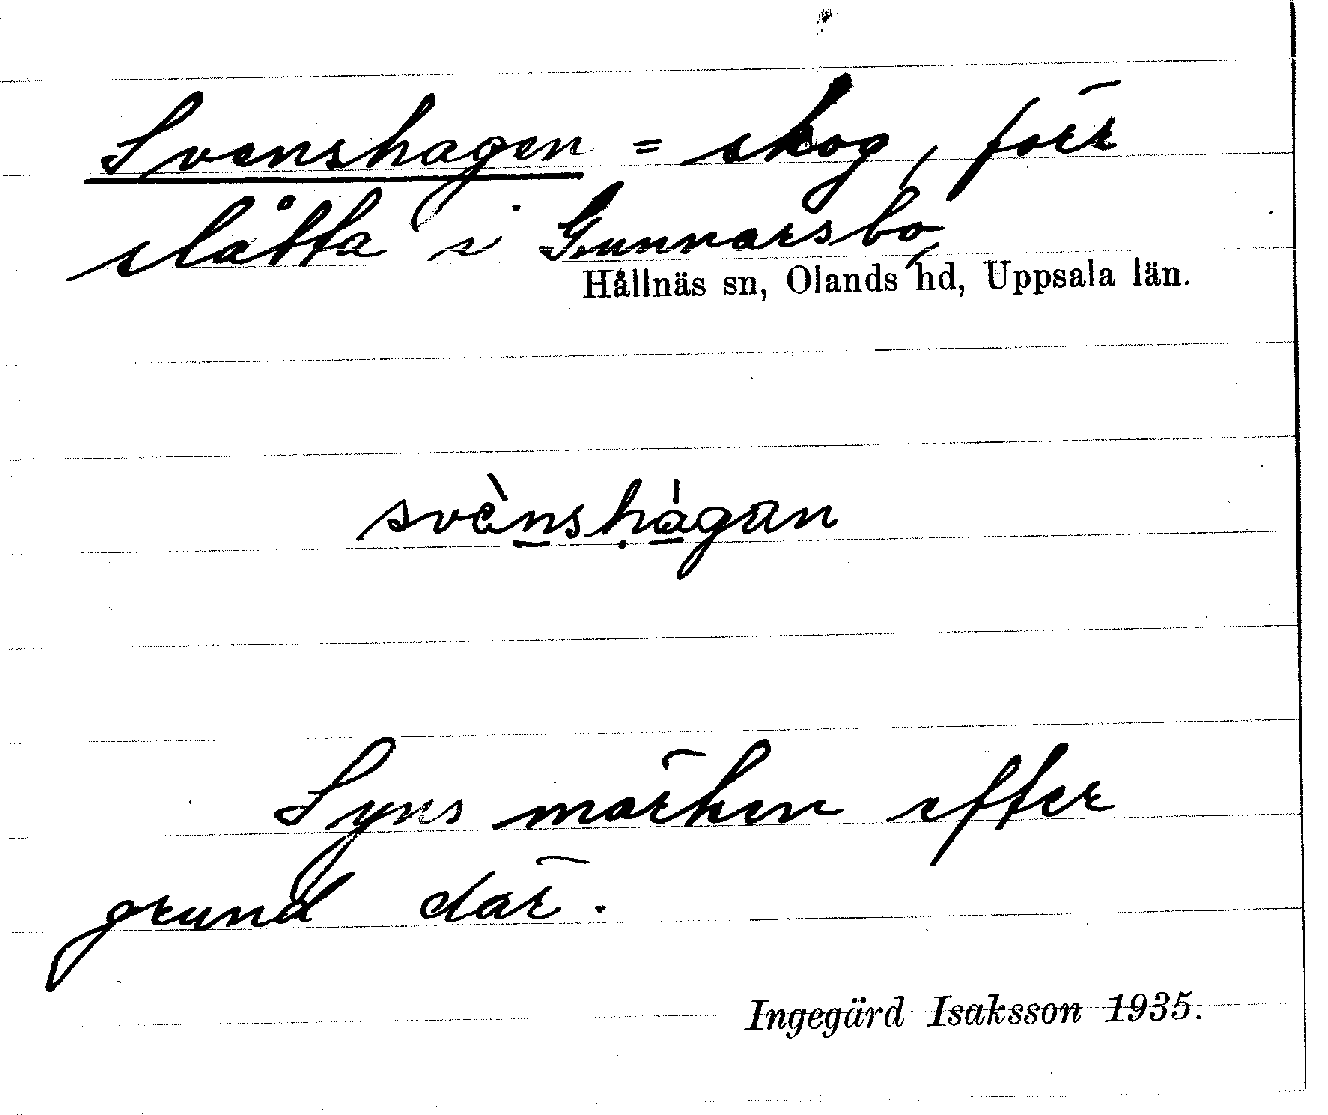 Svenshagen = skog, förr
slåtta i Gunnarsbo,
Hållnäs sn, Olands hd, Uppsala län.
svènshágan
Syns märken efter
grund där.
Ingegärd Isaksson 1935.